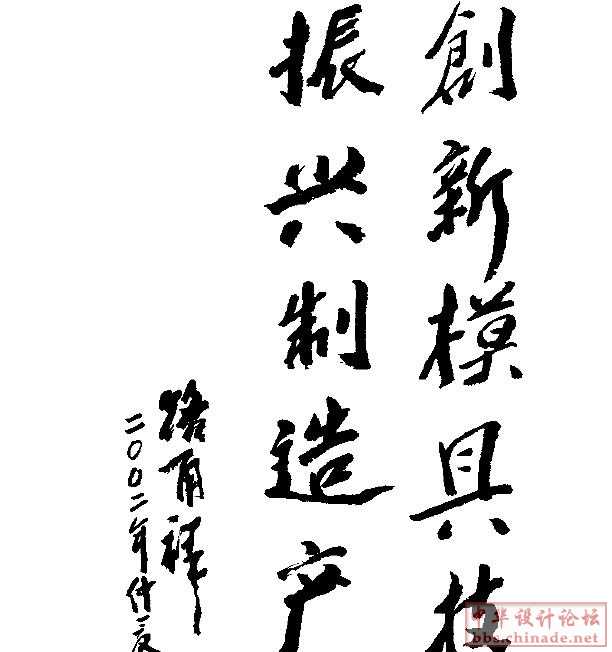 創新模具技
振兴制造产
路甬祥
二〇〇二年
中华设计论坛
bbs.chinade.net